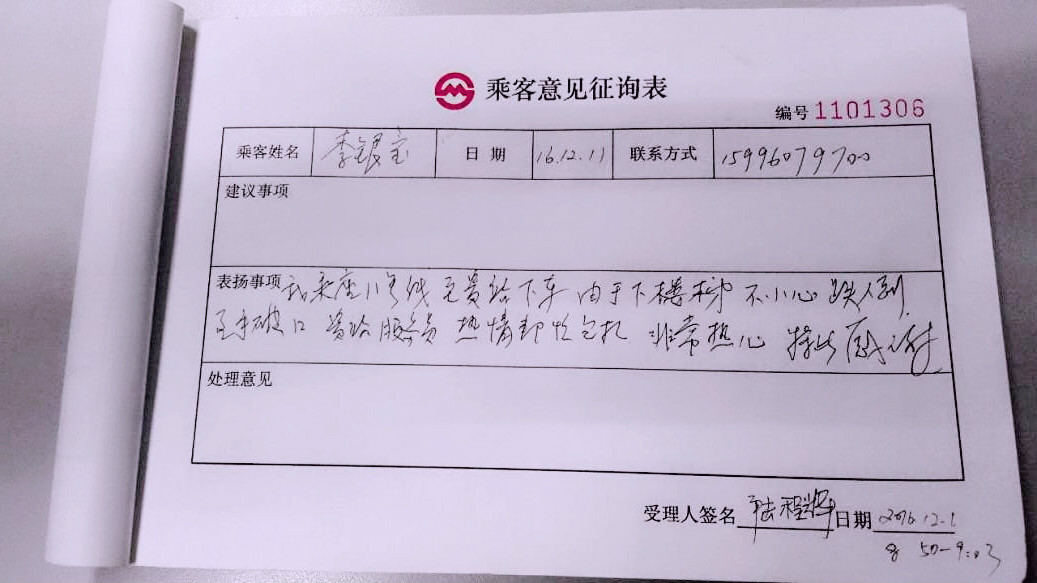 乘客意见征询表
编号 1101306
乘客姓名 李银宝 日期 16.12.11 联系方式 15996079700
建议事项
表扬事项 我乘座11号线 下车 由于下楼梯 不小心 跌倒
手破口 贵站服务员 热情帮忙包扎 非常热心 特此感谢
处理意见
受理人签名 日期 2016.12.1
8 50-9:03